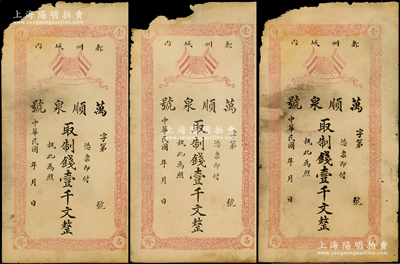 上海阳明拍卖
www.yangmingauction.com
內城州
號泉順萬
字第 號
憑票即付
取制錢壹千文整
執此為照
中華民國 年 月 日
內城州
號泉順萬
字第 號
憑票即付
取制錢壹千文整
執此為照
中華民國 年 月 日
內城州
號泉順萬
字第 號
憑票即付
取制錢壹千文整
執此為照
中華民國 年 月 日